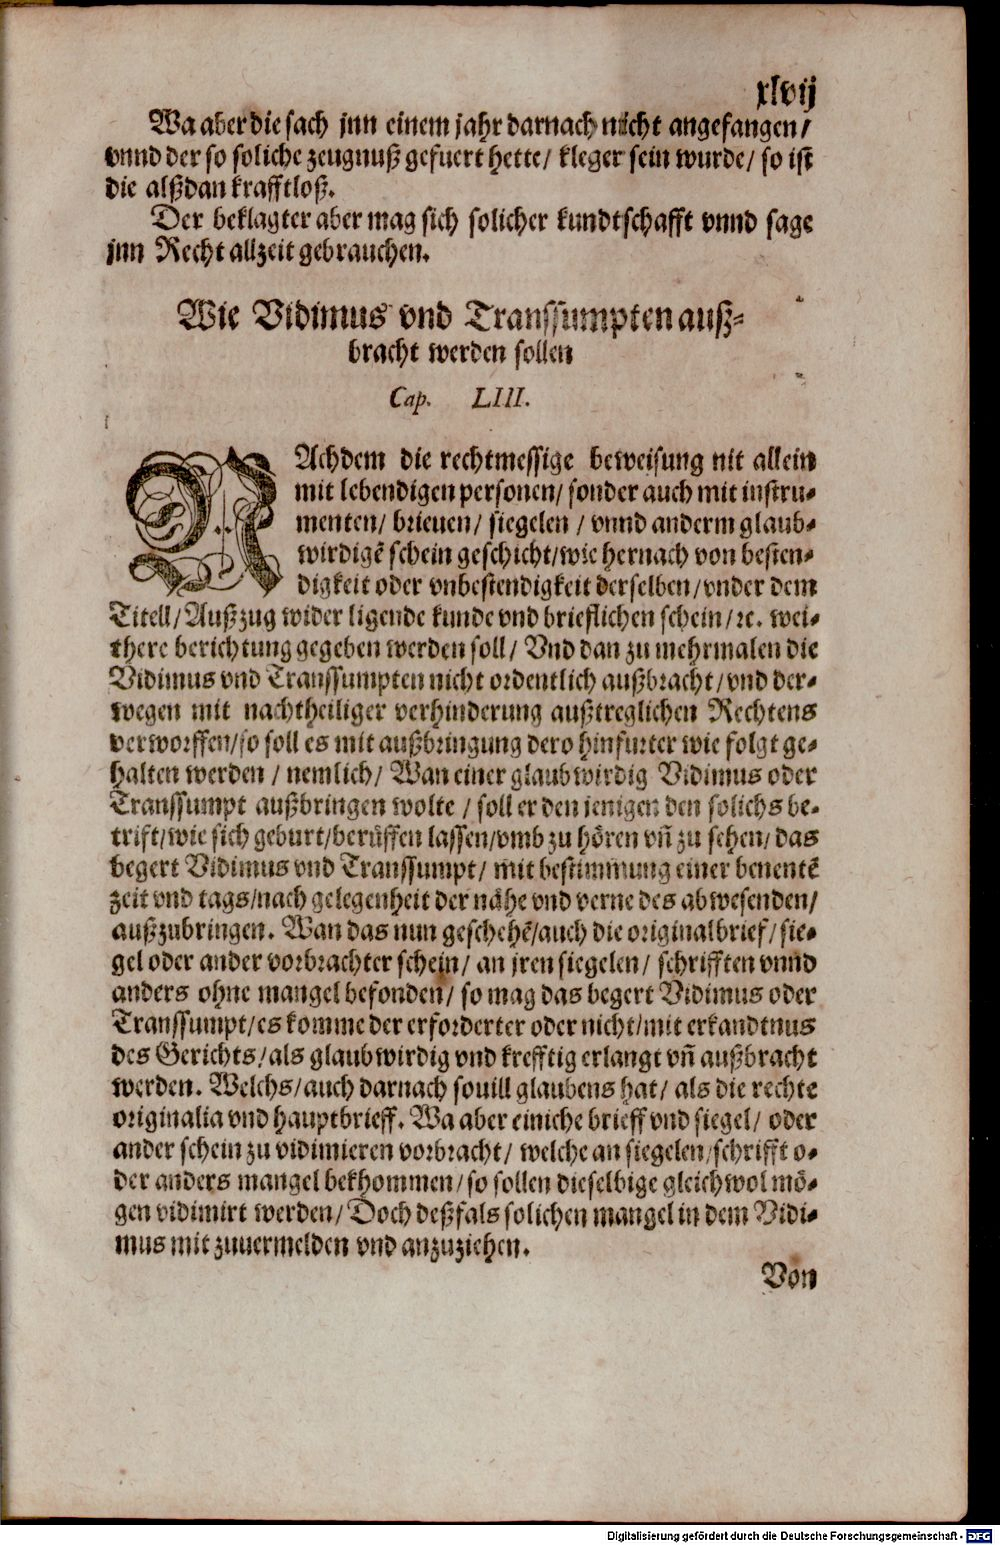 xlvij
Wa aber die sach jnn einem jahr darnach nicht angefangen/
vnnd der so soliche zeugnuß gefuert hette/ kleger sein wurde/ so ist
die alßdan krafftloß.
Der beklagter aber mag sich solicher kundtschafft vnnd sage
jnn Recht allzeit gebrauchen.
Wie Vidimus vnd Transsumpten auß-
bracht werden sollen
Cap. LIII.
NAchdem die rechtmessige beweisung nit allein
mit lebendigen personen/ sonder auch mit instru-
menten/ brieuen/ siegelen / vnnd anderm glaub-
wirdigē schein geschicht/wie hernach von besten-
digkeit oder vnbestendigkeit derselben/vnder dem
Titell/Außzug wider ligende kunde vnd brieflichen schein/ꝛc. wei-
there berichtung gegeben werden soll/ Vnd dan zu mehrmalen die
Vidimus vnd Transsumpten nicht ordentlich außbracht/vnd der-
wegen mit nachtheiliger verhinderung außtreglichen Rechtens
verworffen/so soll es mit außbringung dero hinfurter wie folgt ge-
halten werden / nemlich/ Wan einer glaubwirdig Vidimus oder
Transsumpt außbringen wolte / soll er den jenigen den solichs be-
trift/wie sich geburt/berůffen lassen/vmb zu hören vñ zu sehen/ das
begert Vidimus vnd Transsumpt/ mit bestimmung einer benentē
zeit vnd tags/nach gelegenheit der nähe vnd verne des abwesenden/
außzubringen. Wan das nun geschehē/auch die originalbrief/sie-
gel oder ander vorbrachter schein/ an jren siegelen/ schrifften vnnd
anders ohne mangel befonden/ so mag das begert Vidimus oder
Transsumpt/es komme der erforderter oder nicht/mit erkandtnus
des Gerichts/als glaubwirdig vnd krefftig erlangt vñ außbracht
werden. Welchs/auch darnach souill glaubens hat/ als die rechte
originalia vnd hauptbrieff. Wa aber einiche brieff vnd siegel/ oder
ander schein zu vidimieren vorbracht/ welche an siegelen/schrifft o-
der anders mangel bekhommen/so sollen dieselbige gleichwol mö-
gen vidimirt werden/Doch deßfals solichen mangel in dem Vidi-
mus mit zuuermelden vnd anzuziehen.
Von
Digitalisierung gefördert durch die Deutsche Forschungsgemeinschaft - DFG